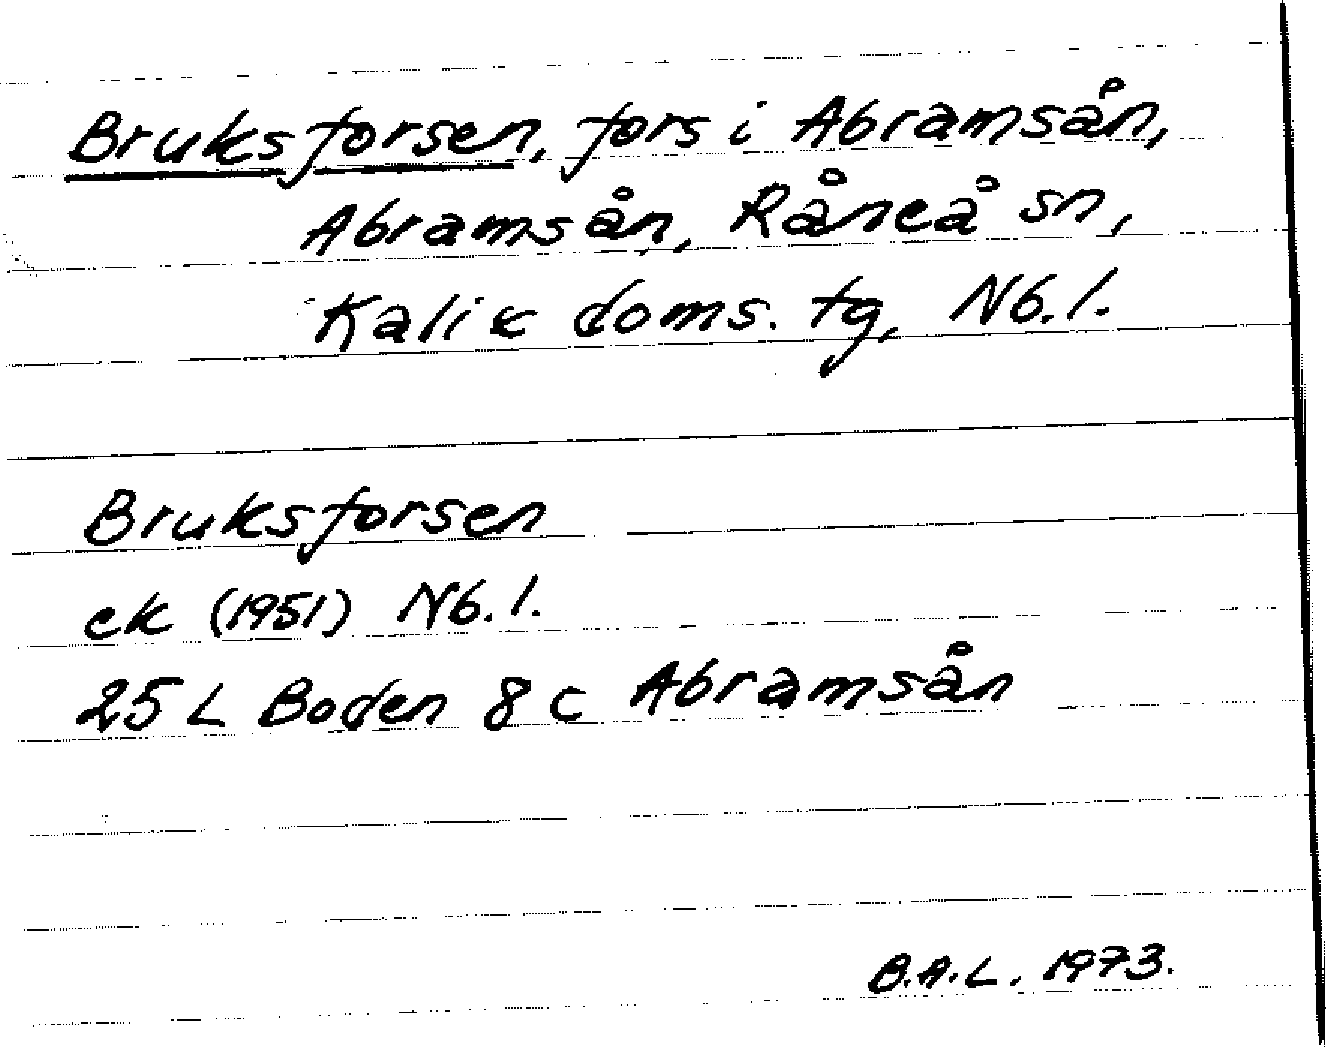 Bruksforsen, fors i Abramsån,
Abramsån, Råneå sn,
Kalix doms. tg, Nb. l.
Bruksforsen
ek (1951) Nb. l.
25 L Boden 8 c Abramsån
B.A.L. 1973.